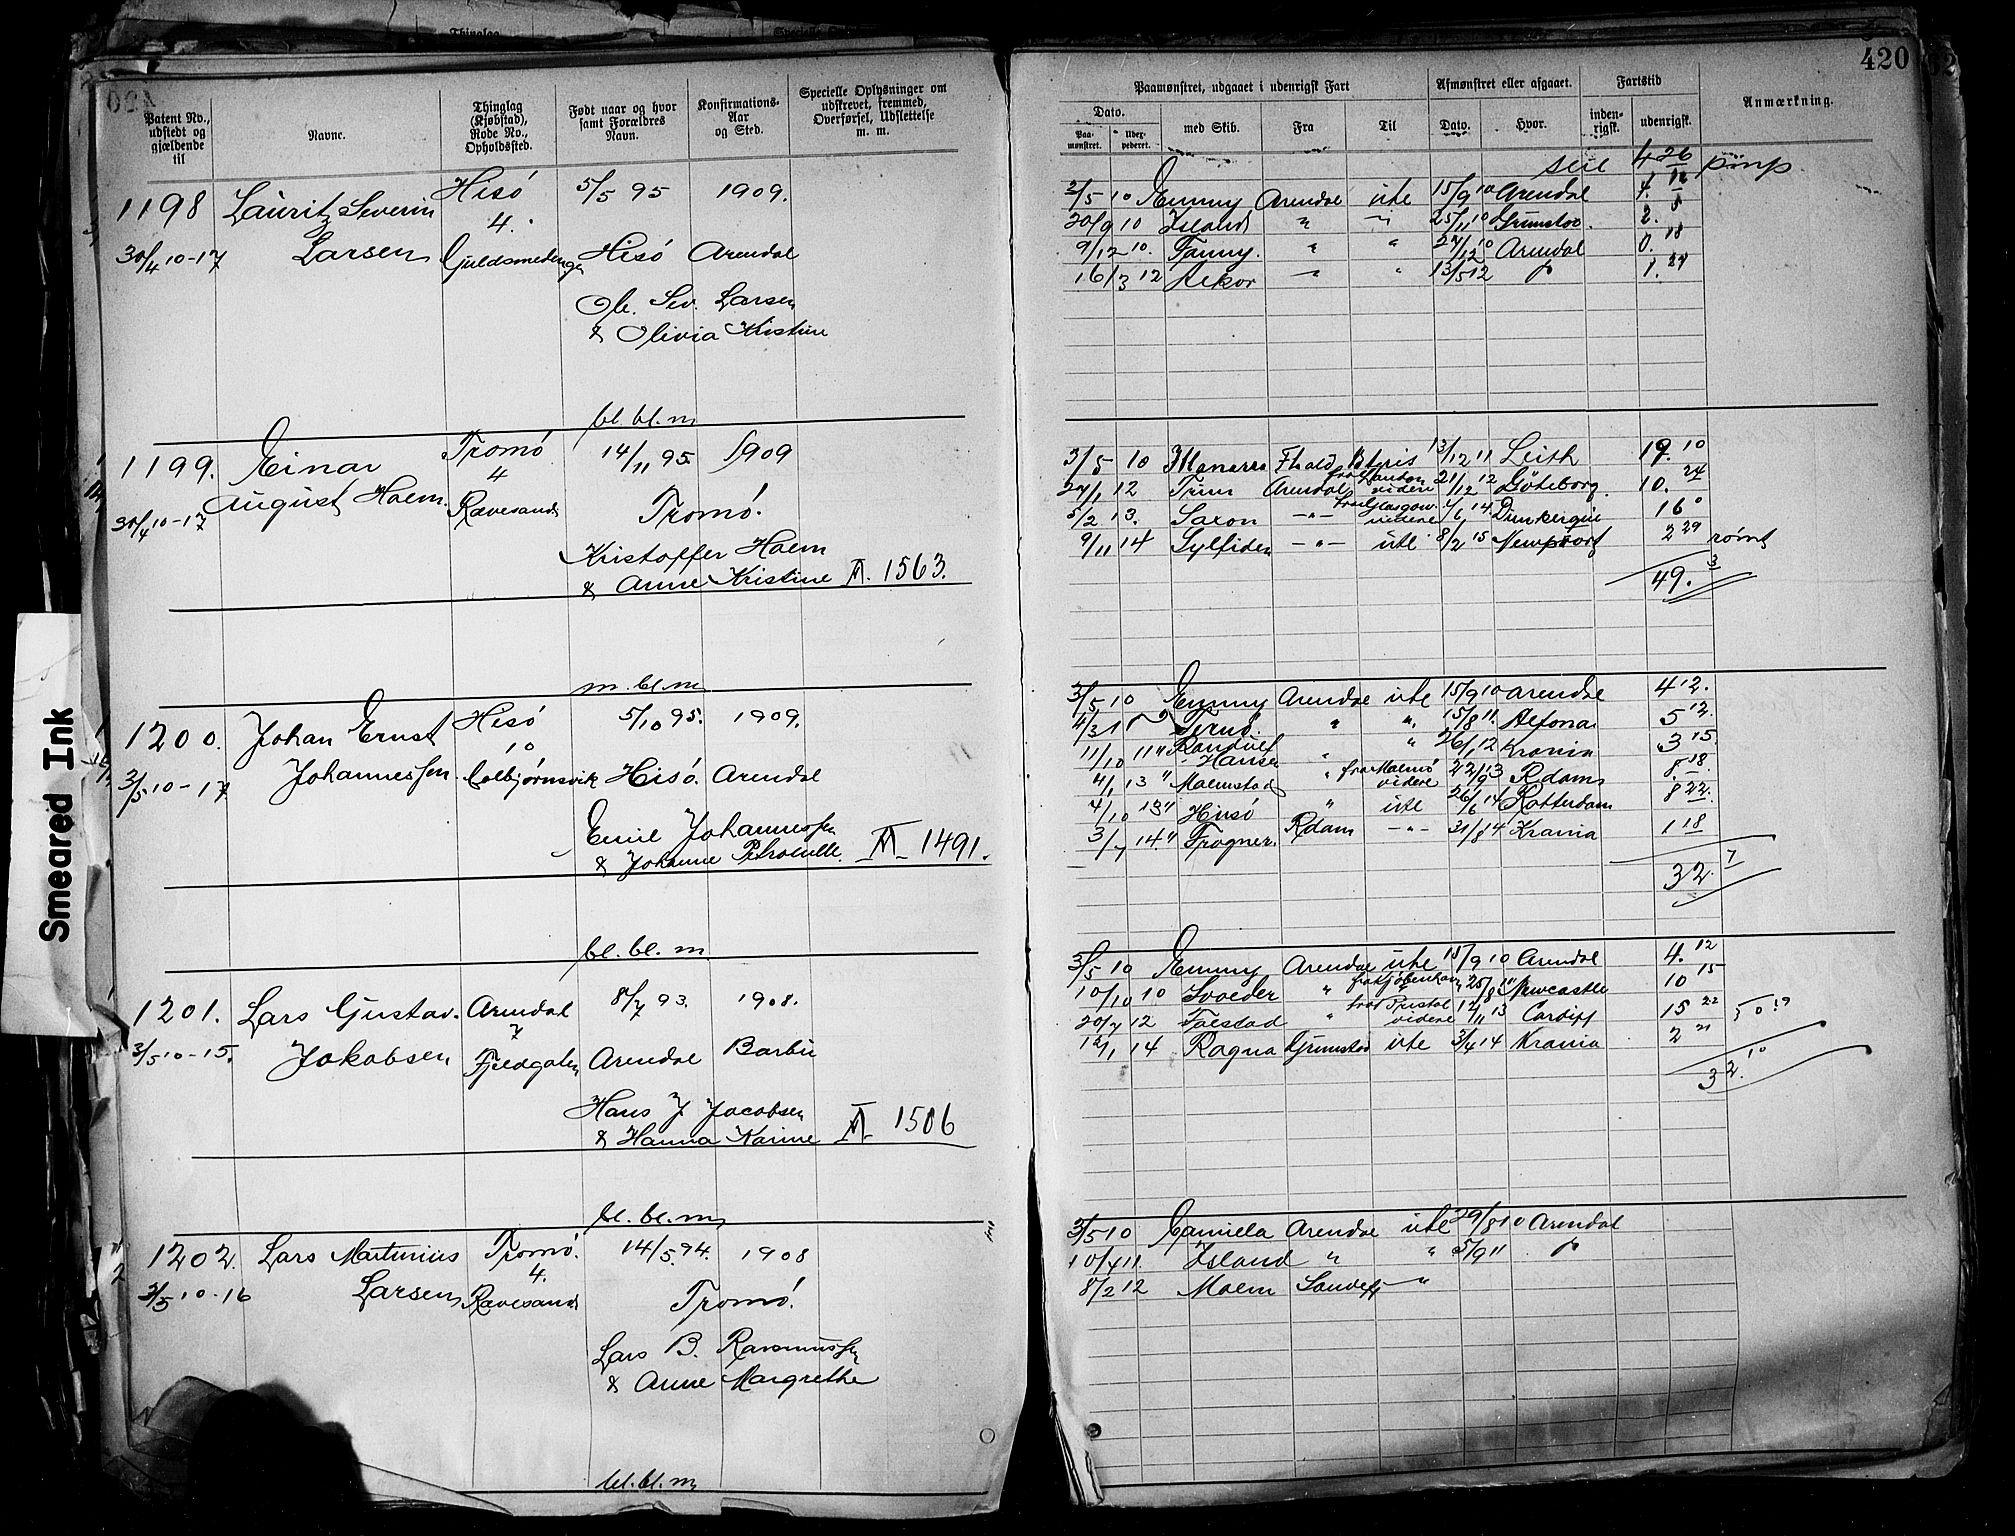 420
Patent No., udstedt og gjældende til
Navne.
Thinglag (Kjøbstad), Rode No., Opholdssted.
Født naar og hvor samt Forældres Navn.
Konfirmations-Aar og Sted.
Specielle Oplysninger om udskrevet, fremmed, Overførsel, Udslettelse m. m.
Paamønstret, udgaaet i udenrigsk Fart
Afmønstret eller afgaaet.
Fartstid
Anmærkning.
Dato.
Paa-mønstret.
Udex-pederet.
med Skib.
Fra
Til
Dato.
Hvor.
inden-rigsk.
udenrigsk.
1198 Lauritz Severin Hisö 5/5 95 1909.
4.
30/4 10-17 Larsen Guldsmedengen Hisö Arendal
Ole Sev. Larsen
& Olivia Kristine
bl. bl. m
1199. Einar Tromö 14/11 95. 1909
August Holm. 4
30/4 10-17 Ravesand Tromö.
Kristoffer Holm
& Anne Kristine 1563.
m. bl. m
1200. Johan Ernst Hisö 5/10 95. 1909.
10
3/5 10-17 Johannessen Colbjørnsvik Hisö. Arendal
Emil Johannessen
& Johanne 1491.
bl. bl. m
1201. Lars Gustav. Arendal 8/7 93. 1908.
7
3/5 10-15. Jakobsen Fjeldgaten Arendal Barbu
Hans J Jacobsen
& Hanna Karine 1506
bl. bl. m
1202. Lars Martinius Tromö. 14/5 94. 1908
4.
3/5 10-16 Larsen Ravesand Tromö.
Lars B. Rasmussen
& Anne Margrethe
bl. bl. m
4 26
2/5 10 Emmy Arendal ute 15/9 10 Arendal 4. 12
20/9 10 Island " " 25/11 10 Grimstad. 2. 5
9/12 10. Fanny. " " 27/12 10 Arendal 0. 18
16/3 12 Rekor " " 13/5 12 1. 27
3/5 10 13/12 11 Leith 19. 10
24/1 12 Trim Arendal videre 21/12 12 Göteborg. 10. 24
5/2 13. Saxon -"- fra Glasgow videre 14. Dunkerque 16 0
9/11 14 Sylfiden -"- ute 8/2 15 Newport 2 29 rømt
49. 3
3/5 10 Emmy Arendal ute 15/9 10 Arendal 4 12.
4/3 11 Ternö. " " 15/8 11. Altona 5 12.
11/10 11 " Randulf Hansen " " 26/1 12 Krania 3 15.
4/1 13 " Malmstad " fra Malmö videre 22/9 13 Rdam 8. 18.
4/10 13 " Hisö " ute 26/6 14 Rotterdam 8 22.
3/7 14. " Frogner. Rdam -"- 31/8 14 Krania 1 18
32. 7
3/5 10 Emmy Arendal ute 15/9 10 Arendal 4. 12
10/10 10 Svolder " fra Kjøbenhavn 25/8 11 Newcastle 10 15
20/7 12 Falstad " fra Bristol videre 12/11 13 Cardiff 15 22
12/1 14 Ragna Grimstad ute 3/4 14 Krania 2 21
32. 10
3/5 10 Camilla Arendal ute 29/8 10 Arendal
10/4 11. Island " " 5/9 11
8/2 12 Malm "
Smeared Ink